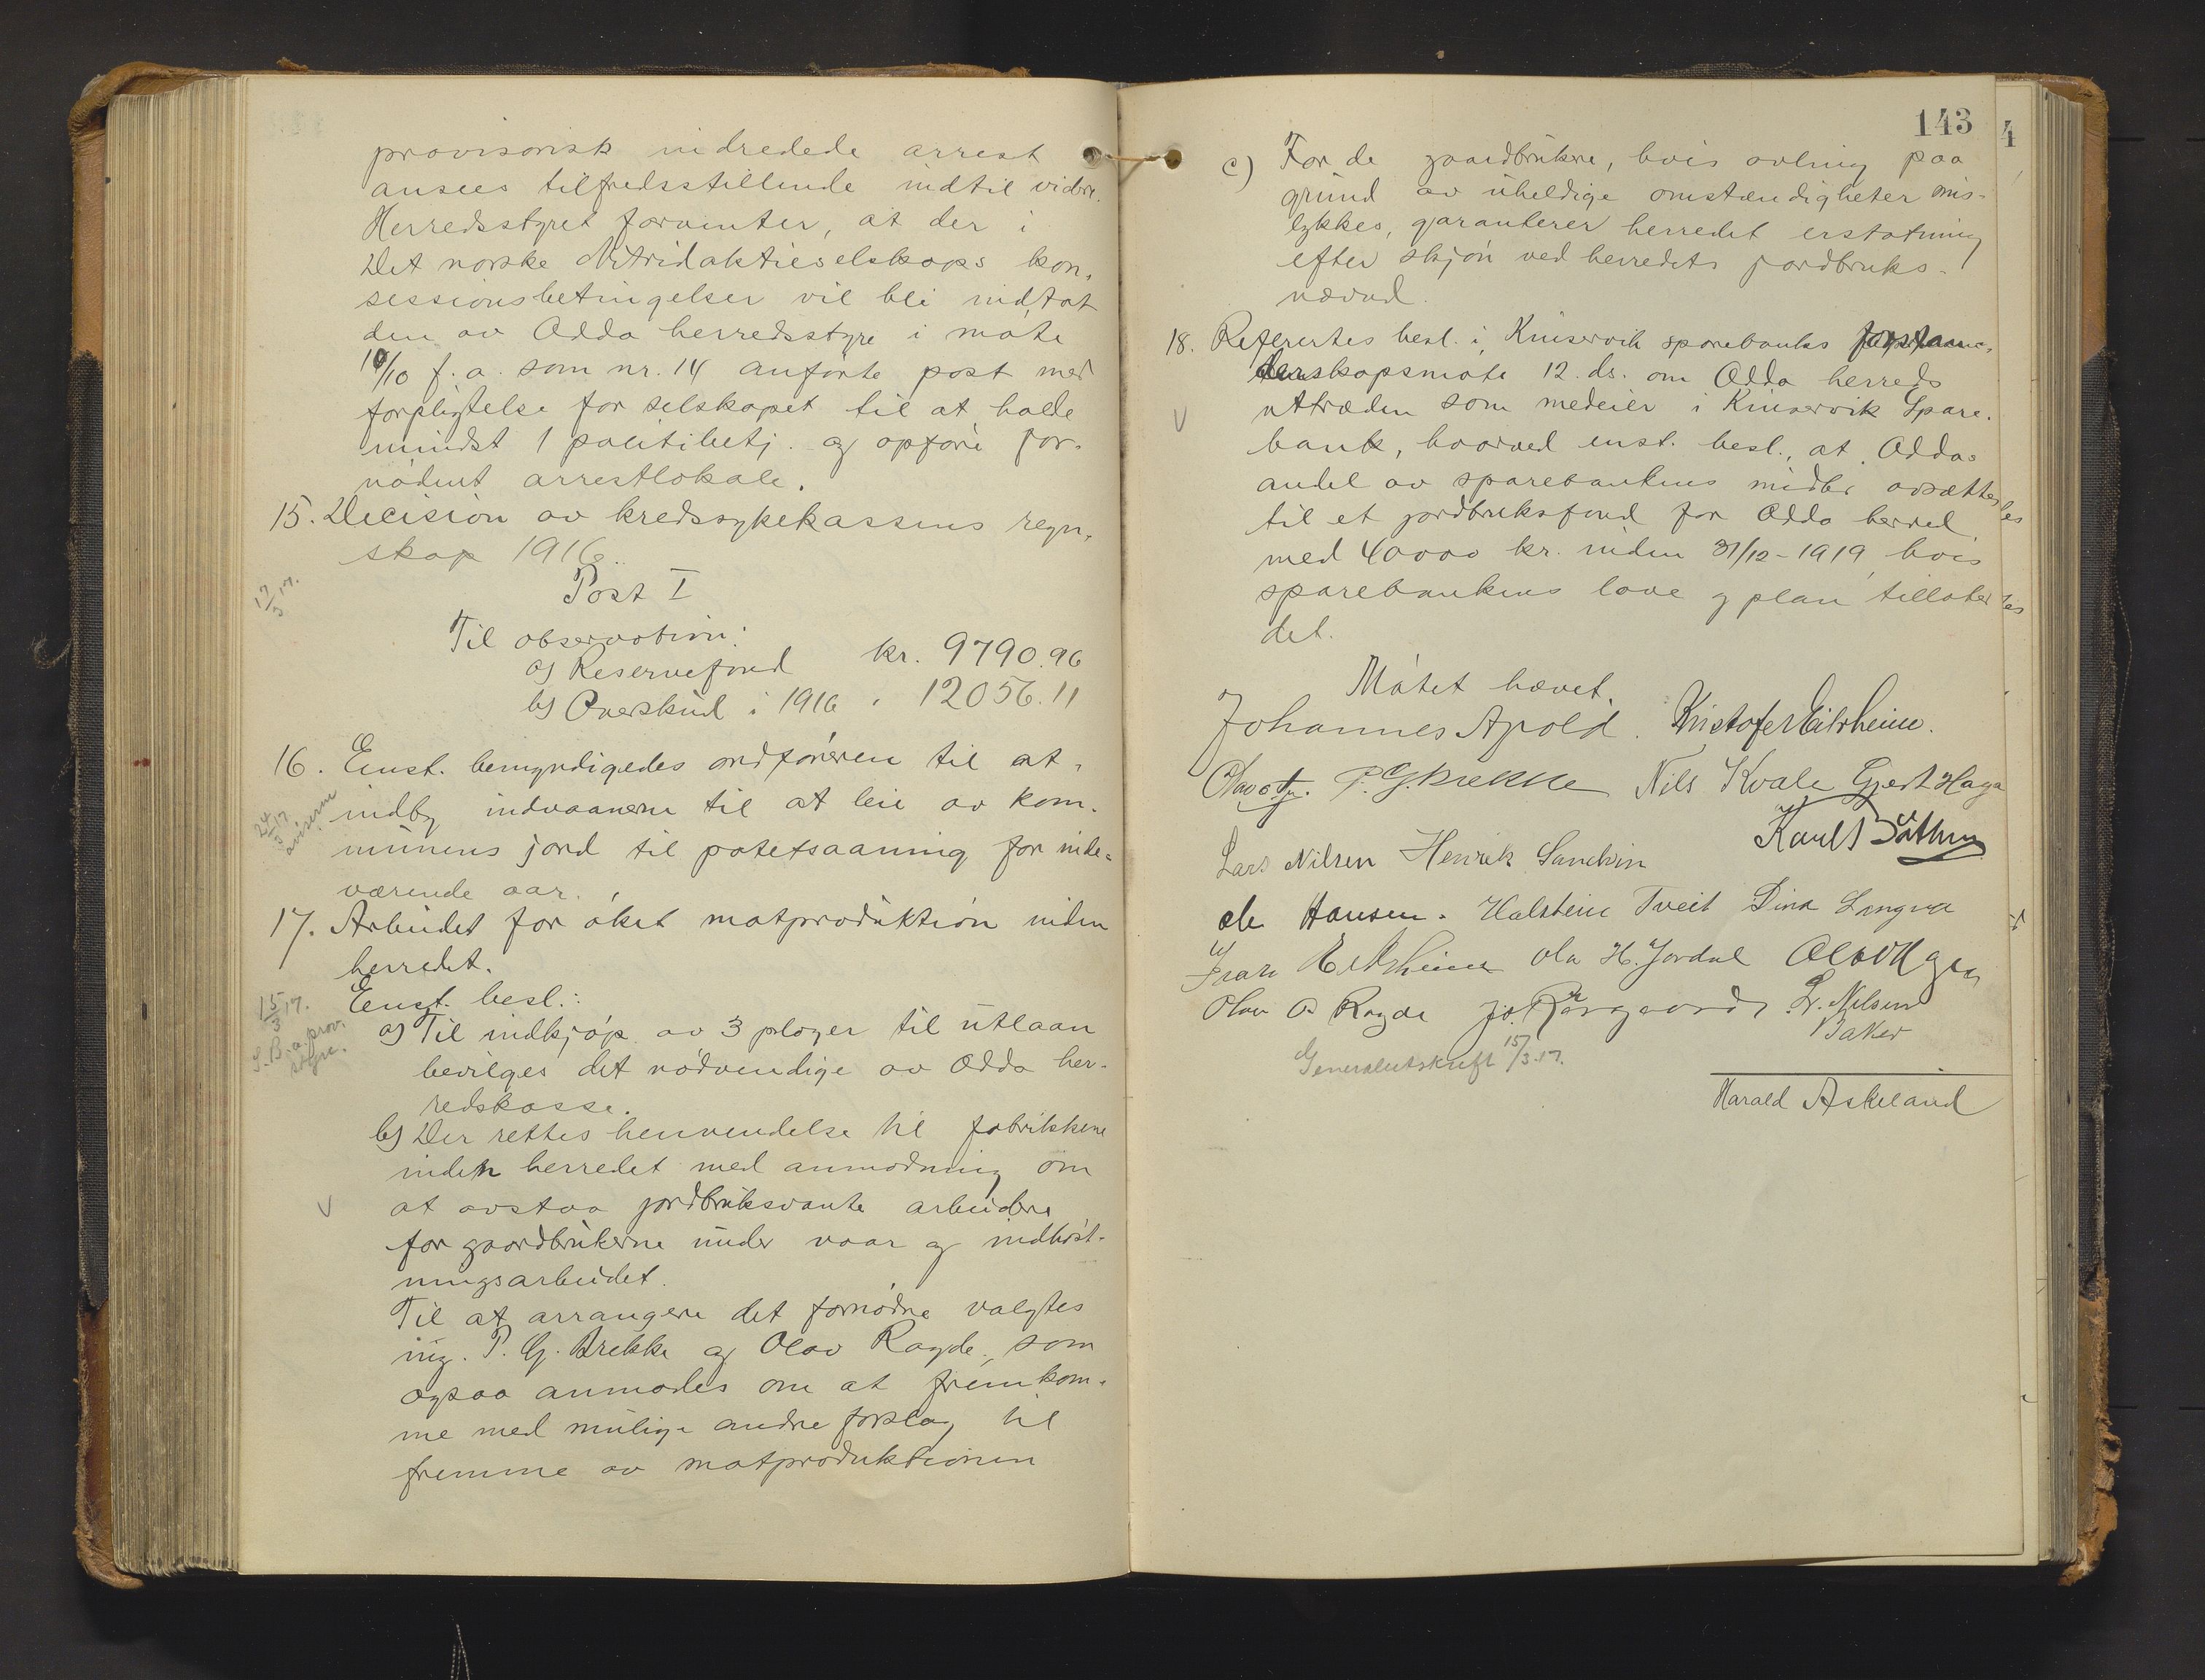 provisorisk indredede arrest
ansees tilfredsstillende indtil videre.
Herredsstyret forventer, at der i
Det norske Nitridaktieselskaps kon-
sessionsbetingelser vil bli indtat
den av Odda herredsstyre i møte
10/10 f. a. som nr. 14 anførte post med
forpligtelse for selskapet til at holde
mindst 1 politibetj. og opføre for-
nødent arrestlokale.
15. Decision av kredssykekassens regn-
skap 1916.
17/3 17.
Post I
Til observation:
a) Reservefond kr. 9790.96
b) Overskud i 1916 " 12056.11
16. Enst. bemyndigedes ordføreren til at
indby indvaanerne til at leie av kom-
24/3 17. avisene
munens jord til potetsaaning for inde-
værende aar.
17. Arbeidet for øket matproduktion inden
herredet.
15/3 17. S.B. a. prov. styre.
Enst. besl.:
a) Til indkjøp av 3 ploger til utlaan
bevilges det nødvendige av Odda her-
redskasse.
b) Der rettes henvendelse til fabrikkene
inden herredet med anmodning om
V at avstaa jordbruksvante arbeidere
for gaardbrukerne under vaar og indhøst-
ningsarbeidet.
Til at arrangere det fornødne valgtes
ing. P. G. Brekke og Olav Ragde, som
ogsaa anmodes om at fremkom-
me med mulige andre forslag til
fremme av matproduktionen
143
4
c) For de gaardbrukere, hvis avling paa
grund av uheldige omstændigheter mis-
lykkes, garanterer herredet erstatning
efter skjøn ved herredets jordbruks-
nævnd.
18. Refertes besl. i Kinservik sparebanks forstan-
derskapsmøte 12. ds. om Odda herreds
V uttræden som medeier i Kinservik Spare-
bank, hvorved enst. besl., at Oddas
andel av sparebankens midler avsættes
til et jordbruksfond for Odda herred
med 40000 kr. inden 31/12-1919, hvis
sparebankens love og plan tillater
det.
Møtet hævet.
Johannes Apold. Kristofer Eitrheim.
P. G. Brekke Nils Kvale Gjert Haga
Lars Nilsen Henrik Sandvin
Hansen. Halstein Tveit Dina Langva
Isak Eitrheim Ola H. Jordal
Olav O Ragde L. Nilsen
Baker
Generalutskrift 15/3.17.
Harald Askeland